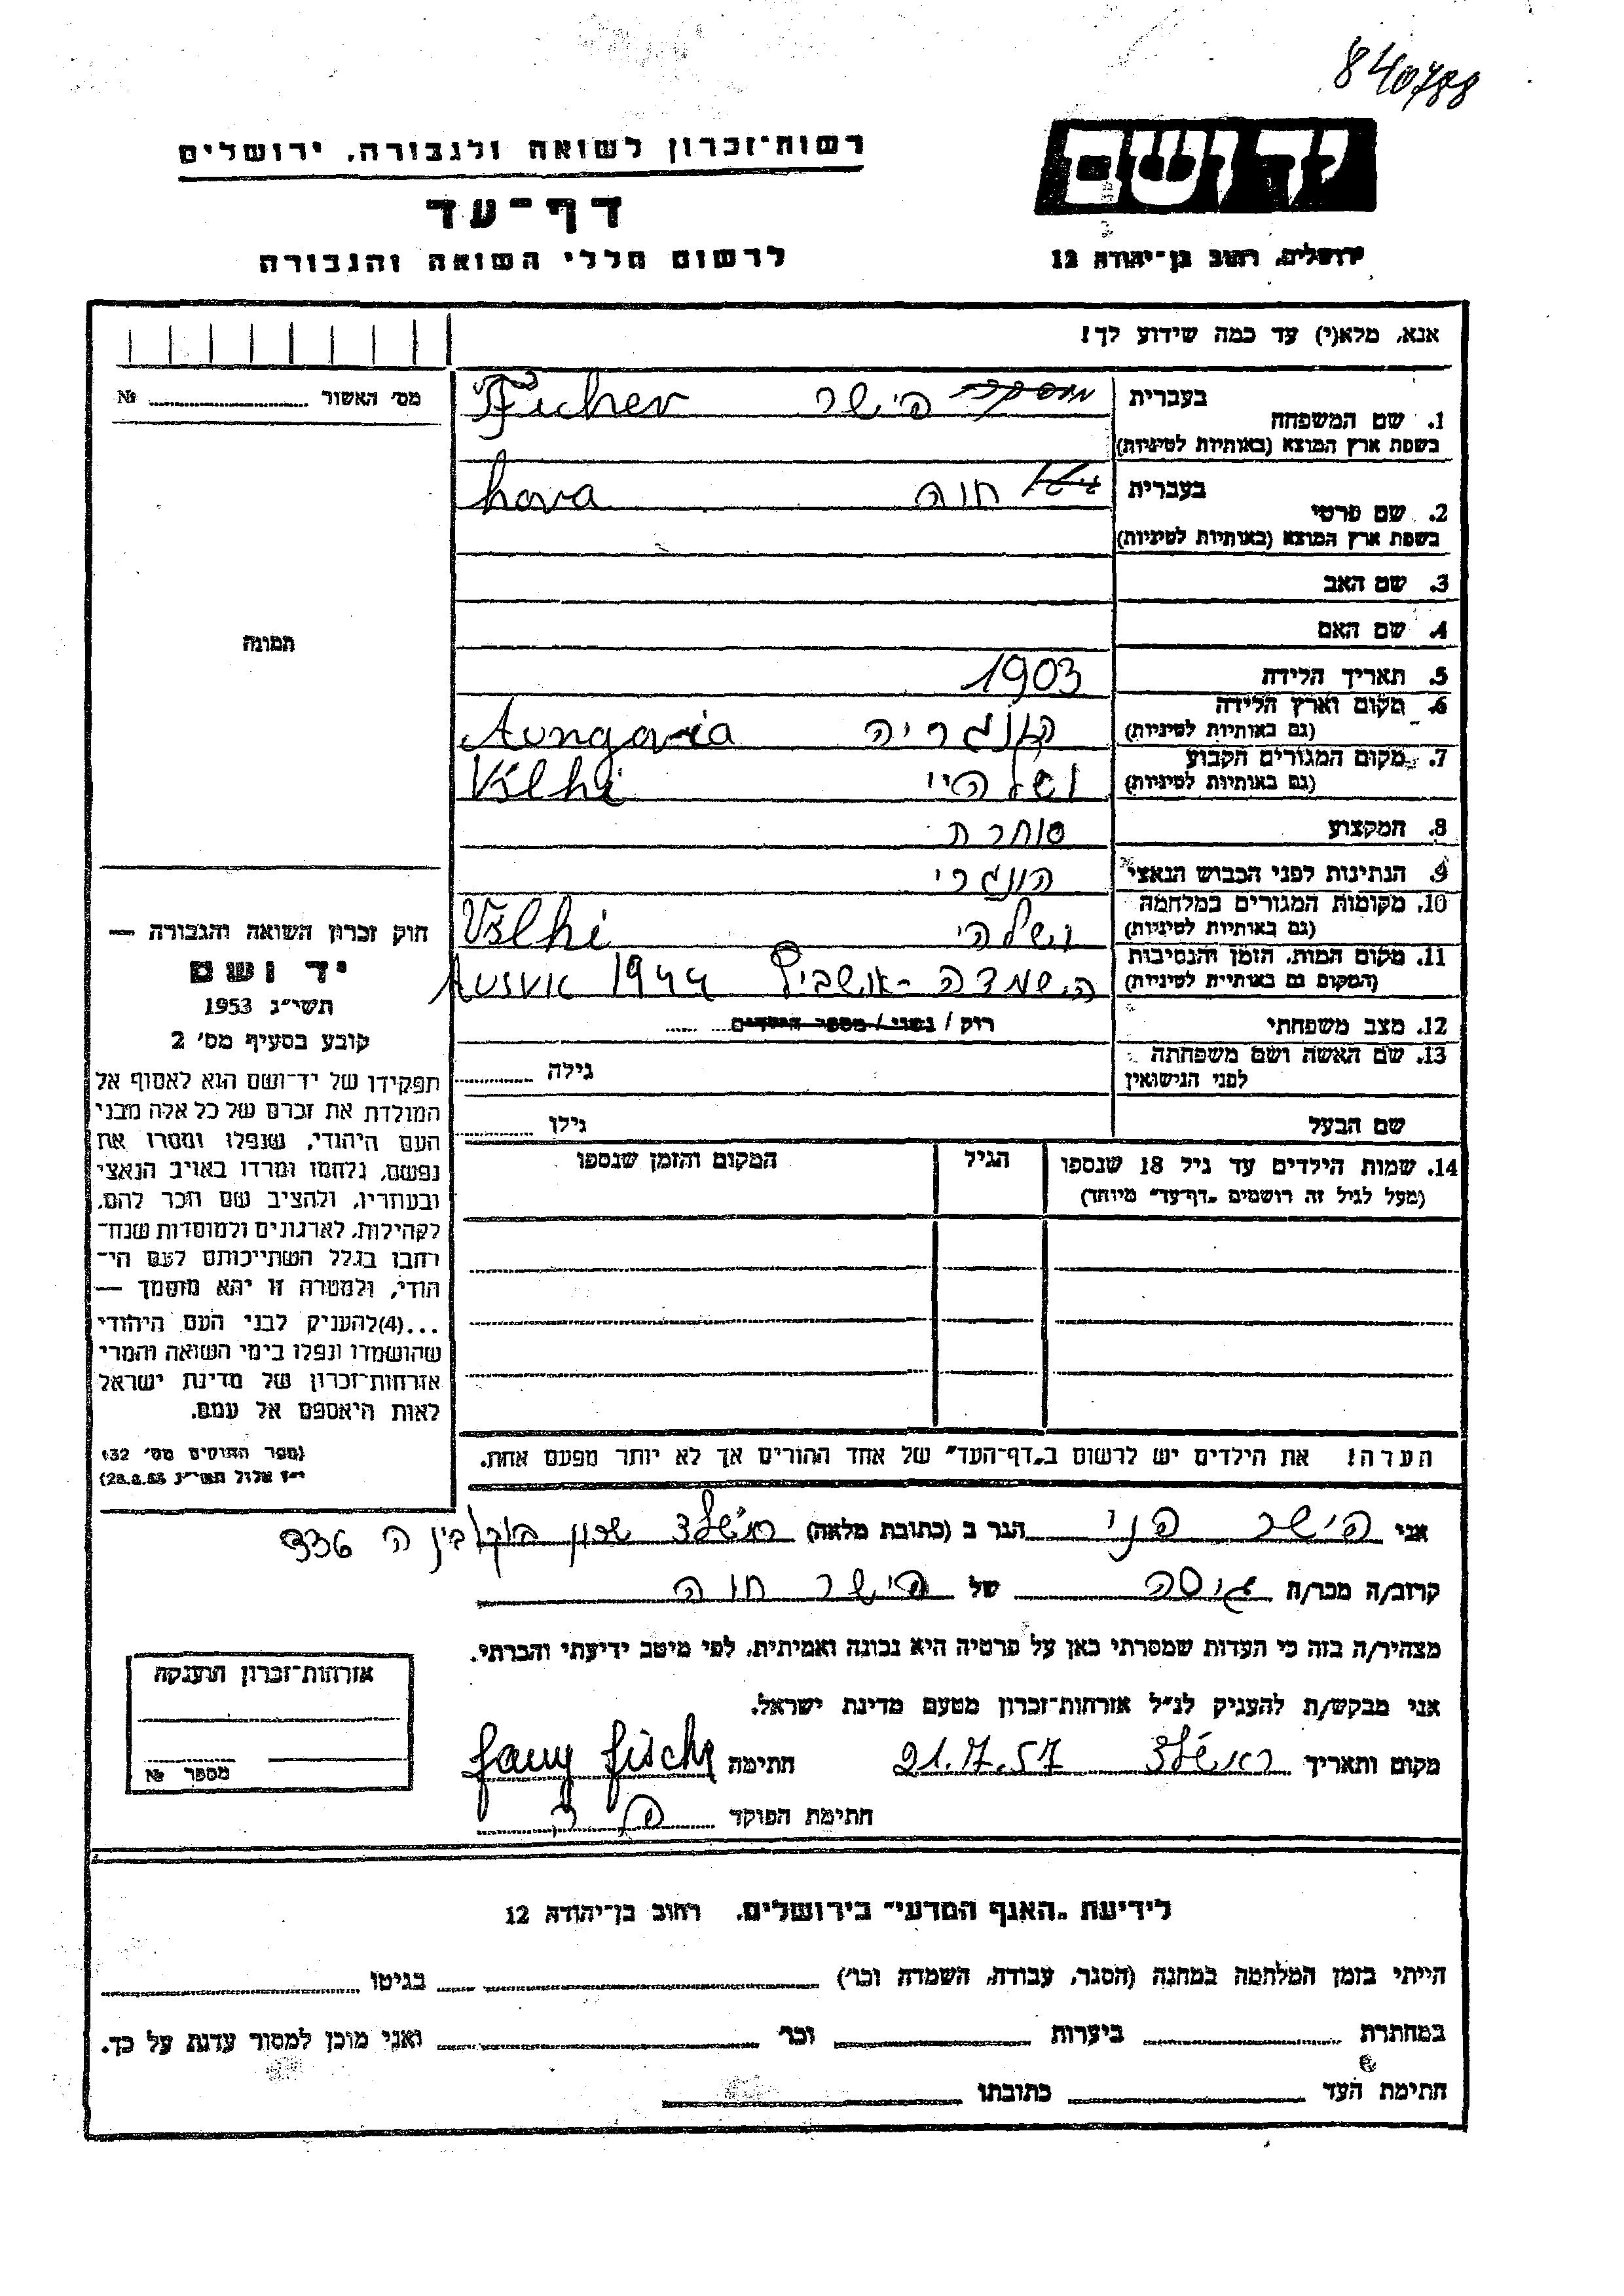 840788
יד ושם
ירושלים, רחוב בן־יהודה 12
רשות־זכרון לשואה ולגבורה, ירושלים
דף־עד
לרשום חללי השואה והגבורה
אנא, מלא(י) עד כמה שידוע לך!
מס׳ האשור № 
תמונה
חוק זכרון השואה והגבורה —
יד ושם
תשי״ג 1953
קובע בסעיף מס׳ 2
תפקידו של יד־ושם הוא לאסוף אל
המולדת את זכרם של כל אלה מבני
העם היהודי, שנפלו ומסרו את
נפשם, נלחמו ומרדו באויב הנאצי
ובעוזריו, ולהציב שם וזכר להם,
לקהילות, לארגונים ולמוסדות שנח־
רחבו בגלל השתייכותם לעם הי־
הודי, ולמטרה זו יהא מוסמך —
...(4)להעניק לבני העם היהודי
שהושמדו ונפלו בימי השואה והמרי
אזרחות־זכרון של מדינת ישראל
לאות היאספם אל עמם.
(ספר החוקים מס׳ 132
י״ז אלול תשי״ג 28.8.53)
1. שם המשפחה בעברית פישר Ficher
בשפת ארץ המוצא (באותיות לטיניות)
2. שם פרטי בעברית חוה hava
בשפת ארץ המוצא (באותיות לטיניות)
3. שם האב
4. שם האם
5. תאריך הלידה 1903
6. מקום וארץ הלידה הונגריה Aungaria
(גם באותיות לטיניות)
7. מקום המגורים הקבוע
(גם באותיות לטיניות)
8. המקצוע סוחרת
9. הנתינות לפני הכבוש הנאצי הונגרי
10. מקומות המגורים במלחמה
(גם באותיות לטיניות)
11. מקום המות, הזמן והנסיבות השמדה - אושביץ 1944
(המקום גם באותיות לטיניות)
12. מצב משפחתי רוק / נשוי / מספר הילדים
13. שם האשה ושם משפחתה גילה
לפני הנישואין
שם הבעל גילו
14. שמות הילדים עד גיל 18 שנספו הגיל המקום והזמן שנספו
(מעל לגיל זה רושמים „דף־עד״ מיוחד)
הערה! את הילדים יש לרשום ב„דף־העד״ של אחד ההורים אך לא יותר מפעם אחת.
אני פישר פני הגר ב (כתובת מלאה) ראשל״צ שכון
קרוב/ה מכר/ה גיסה של פישר חוה
מצהיר/ה בזה כי העדות שמסרתי כאן על פרטיה היא נכונה ואמיתית, לפי מיטב ידיעתי והכרתי.
אני מבקש/ת להעניק לנ״ל אזרחות־זכרון מטעם מדינת ישראל.
מקום ותאריך ראשל״צ 21.7.57 חתימה fany fisch
חתימת הפוקד
אזרחות־זכרון הוענקה
מספר №
לידיעת „האגף המדעי״ בירושלים, רחוב בן־יהודה 12
הייתי בזמן המלחמה במחנה (הסגר, עבודת, השמדה וכו׳) בגיטו
במחתרת ביערות וכו׳ ואני מוכן למסור עדות על כך.
חתימת העד כתובתו